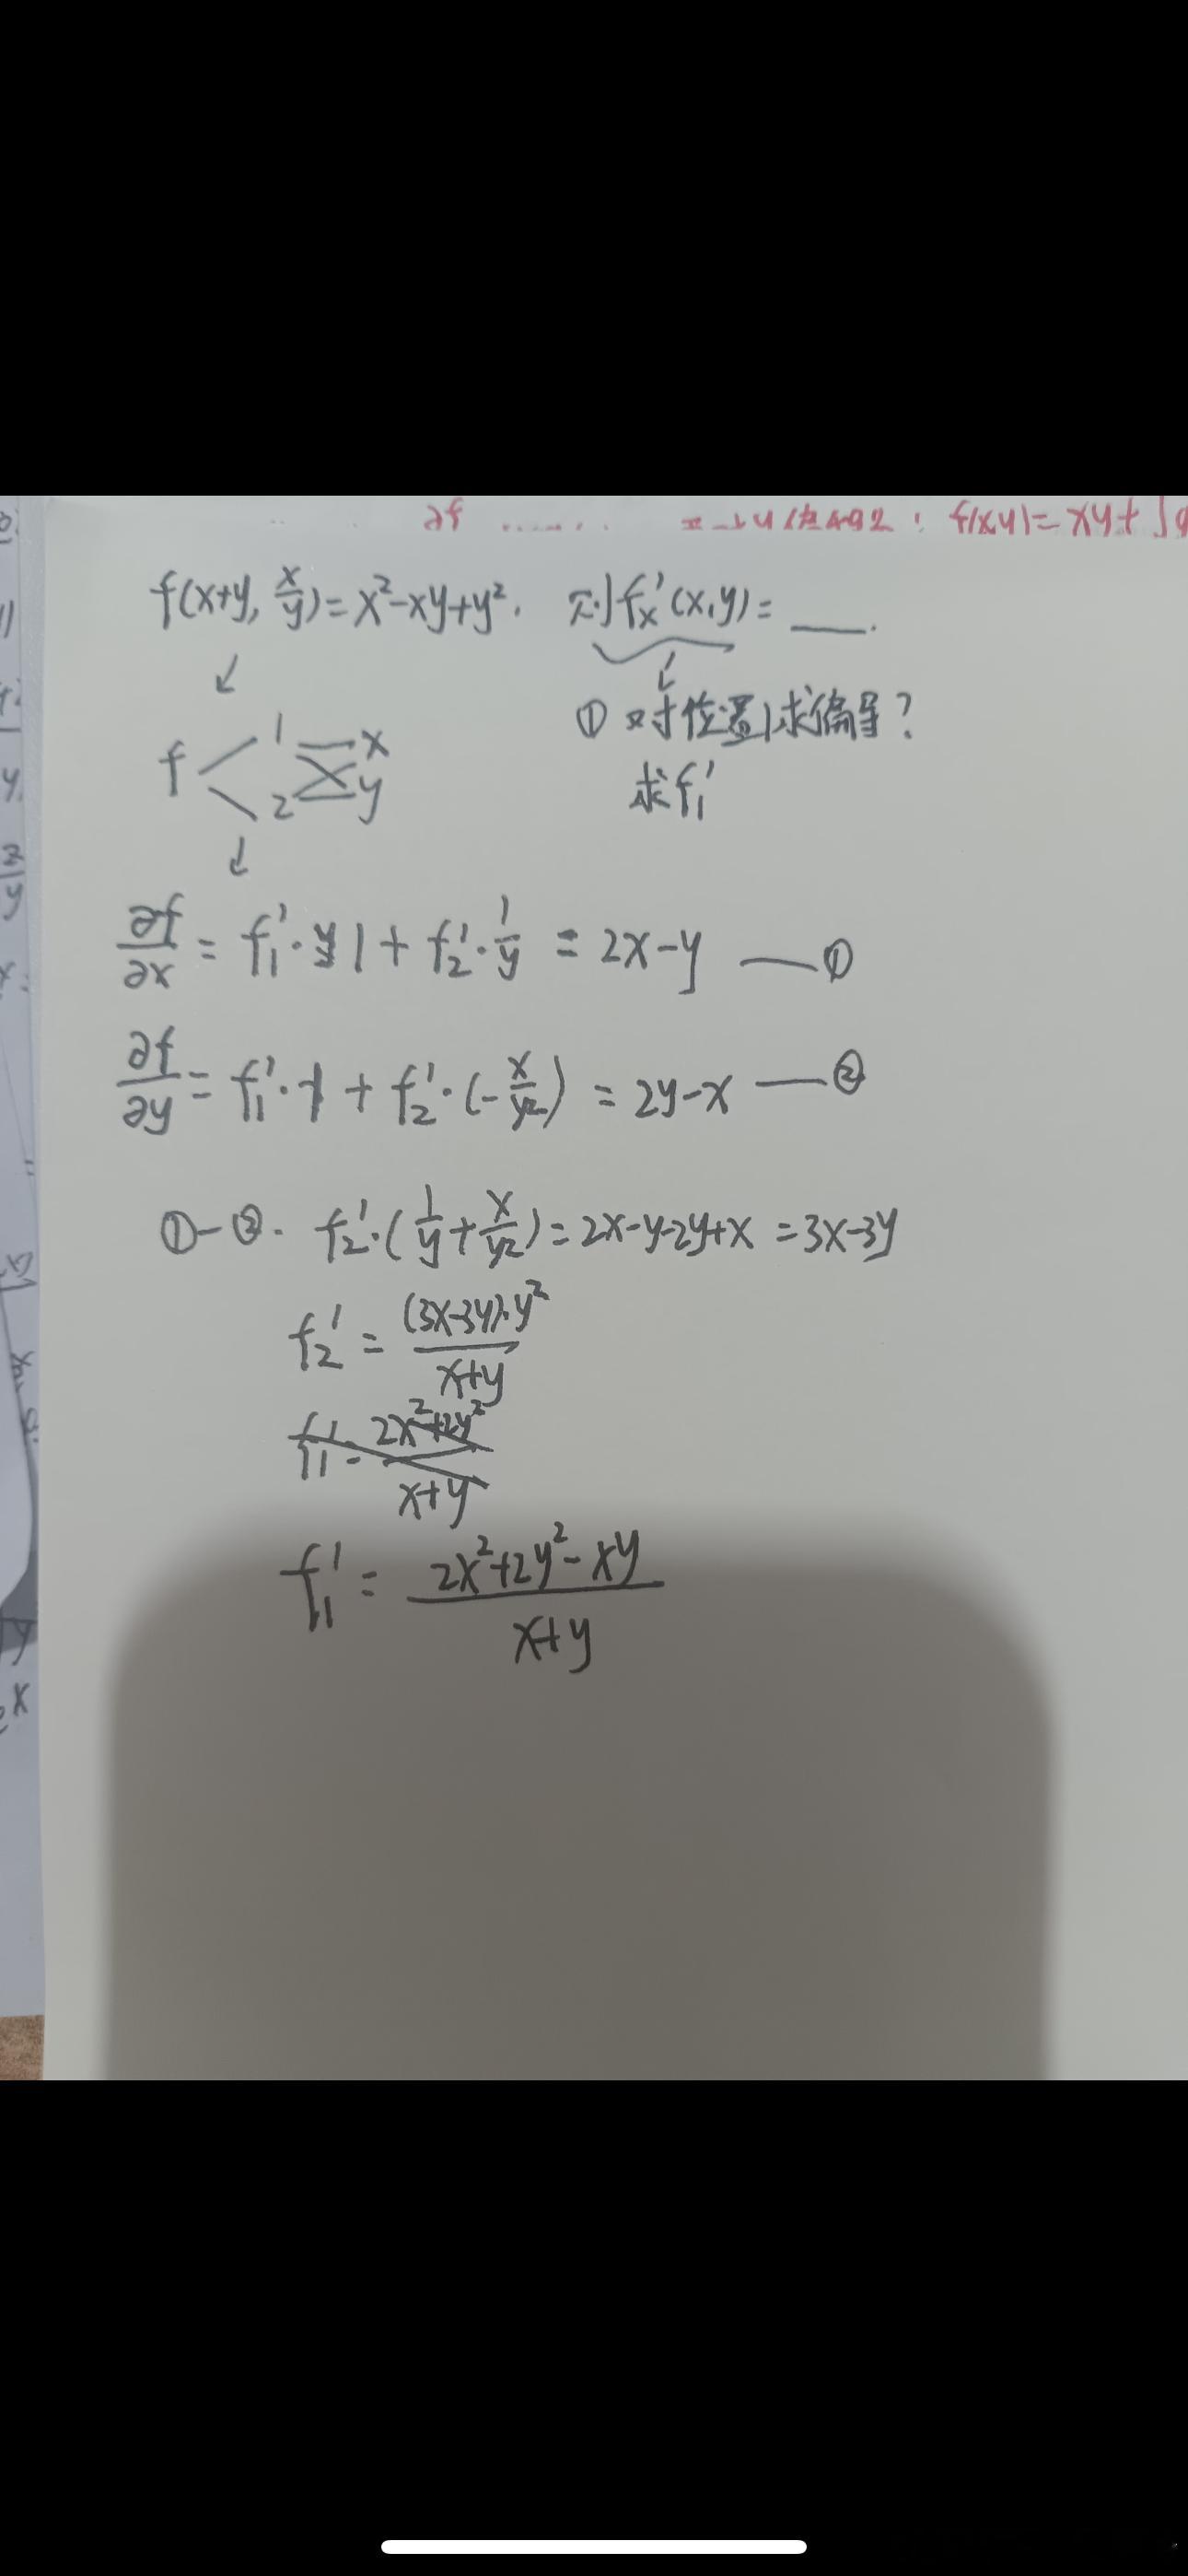 ∂f
f(x,y)=xy+∫
f(x+y, x/y)=x²-xy+y². 则f'x(x,y)=___.
① 对位置1求偏导?
求f'1
f 1 x
2 y
∂f/∂x = f'1·1 + f'2·1/y = 2x-y ——①
∂f/∂y = f'1·1 + f'2·(-x/y²) = 2y-x ——②
①-②. f'2·(1/y+x/y²)=2x-y-2y+x =3x-3y
f'2 = (3x-3y)·y²/x+y
f'1 = 2x²+2y²/x+y
f'1 = 2x²+2y²-xy/x+y